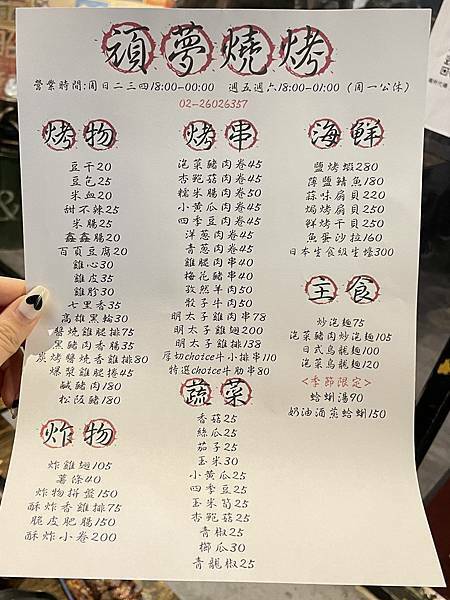 頑夢燒烤
營業時間:周日二三四18:00-00:00 週五週六18:00-01:00 (周一公休)
02-26026357
烤物
豆干20
豆包25
米血20
甜不辣25
米腸25
鑫鑫腸20
百頁豆腐20
雞心30
雞皮35
雞胗30
七里香35
高雄黑輪30
醬燒雞腿排75
黑豬肉香腸35
炭烤醬燒香雞排80
爆漿雞腿捲45
鹹豬肉180
松阪豬180
炸物
炸雞翅105
薯條40
炸物拼盤150
酥炸香雞排75
脆皮肥腸150
酥炸小卷200
烤串
泡菜豬肉卷45
杏鮑菇肉卷45
糯米腸肉卷50
小黃瓜肉卷45
四季豆肉卷45
洋蔥肉卷45
青蔥肉卷45
雞腿肉串40
梅花豬串40
孜然羊肉50
骰子牛肉50
明太子雞肉串78
明太子雞翅200
明太子雞排138
厚切choice牛小排串110
特選choice牛肋串80
蔬菜
香菇25
絲瓜25
茄子25
玉米30
小黃瓜25
四季豆25
玉米筍25
杏鮑菇25
青椒25
櫛瓜30
青龍椒25
海鮮
鹽烤蝦280
薄鹽鯖魚180
蒜味扇貝220
焗烤扇貝250
鮮烤干貝250
魚蛋沙拉160
日本生食級生蠔300
主食
炒泡麵75
泡菜豬肉炒泡麵105
日式烏龍麵100
泡菜烏龍麵120
<季節限定>
蛤蜊湯90
奶油酒蒸蛤蜊150